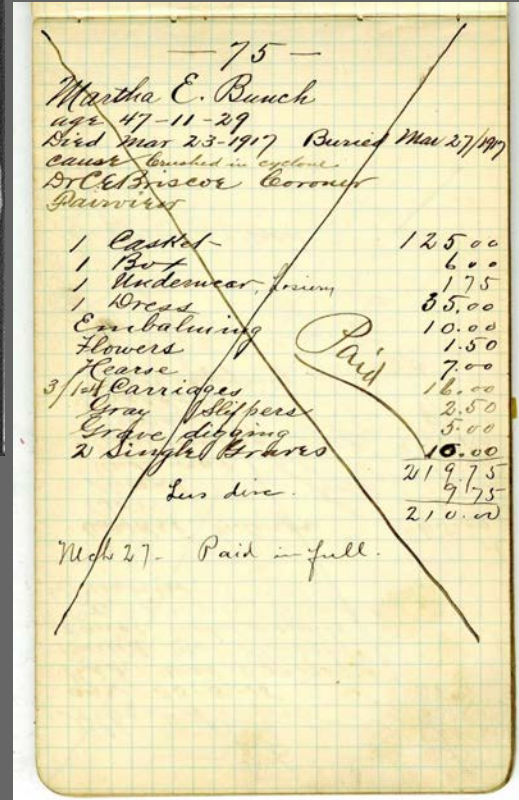 — 75 —
Martha E. Bunch
age 47-11-29
Died Mar 23-1917 Buried Mar 27/1917
cause Crushed in cyclone
Dr C E Briscoe Coroner
Fairview
1 Casket 125.00
1 Box 6.00
1 Underwear, hosiery 1 75
1 Dress 35.00
Embalming 10.00
Flowers 1.50
Hearse 7.00
Carriages 16.00
Gray Slippers 2.50
Grave digging 5.00
2 Single Graves 10.00
Paid
219.75
Less disc. 9 75
210.00
Mch 27- Paid in full.